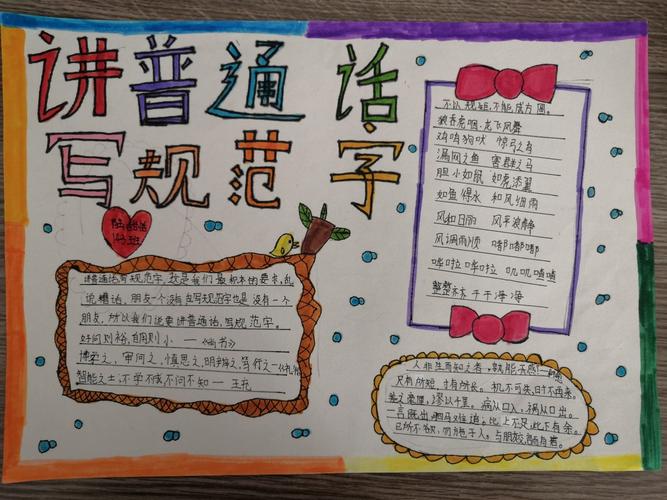 讲普通话
写规范字
143班
讲普通话,写规范字,这是我们最根本的要求,乱
说糟话,朋友一个没有,写规范字也是没有一个
朋友,所以我们说要讲普通话,写规范字。
好问则裕,自用则小——《尚书》
博柔之,审问之,慎思之,明辨之,笃行之—《礼记
智能之士,不学不成,不问不知——王充
不以规矩,不能成方圆。
狼吞虎咽 龙飞凤舞
鸡鸣狗吠 惊弓之鸟
漏网之鱼 害群之马
胆小如鼠 如虎添翼
如鱼得水 和风细雨
风和日丽 风平浪静
风调雨顺 嘟嘟嘟
哗啦哗啦 叽叽喳喳
整整齐齐 干干净净
人非生而知之者,孰能无惑
尺有所短,寸有所长。机不可失,时不再来。
差之毫厘,谬以千里。病从口入,祸从口出。
一言既出,驷马难追。比上不足,比下有余。
己所不欲,勿施于人。与朋交,